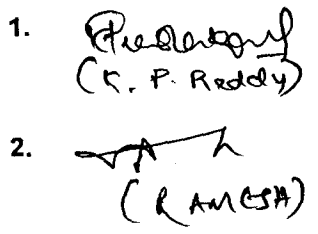 1.
(K. P. Reddy)
2.
(RAMESH)